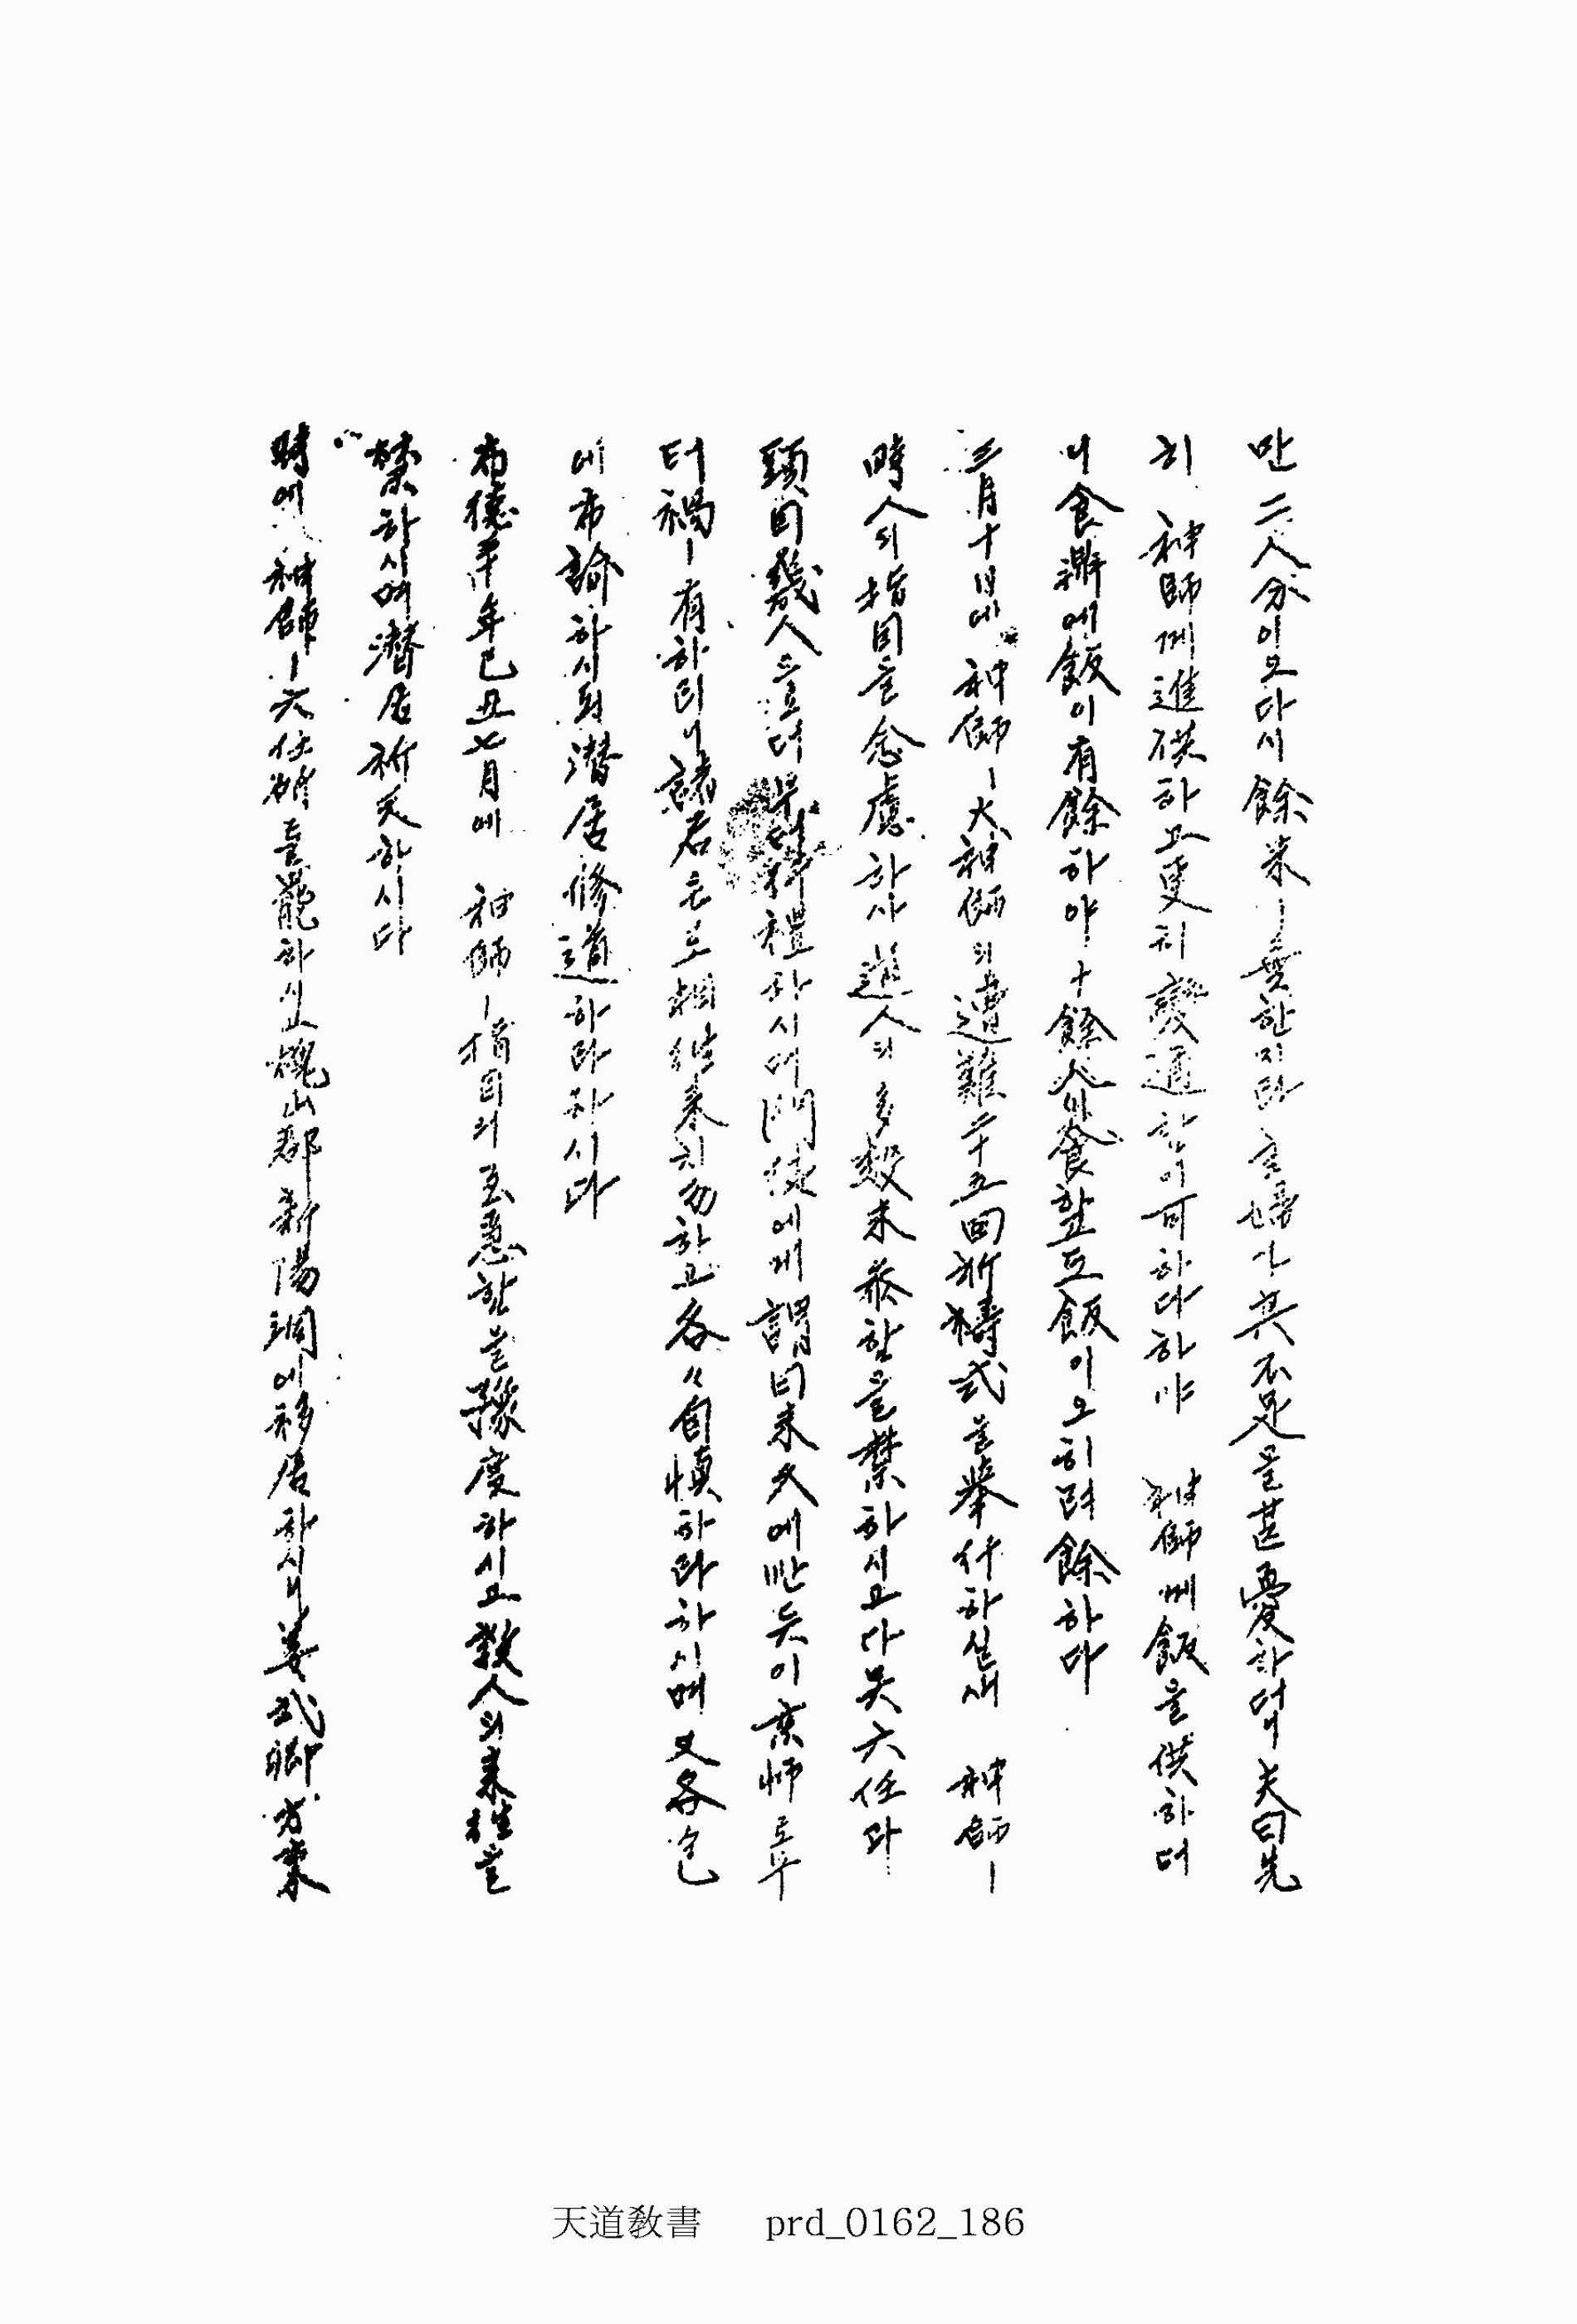 만 二人分이오 다시 餘米ㅣ無한지라 主婦가 其不足을 甚憂하더니 夫曰先
히 神師께 進供하고 更히 變通함이 可하다 하야 神師께 飯을 供하더
니 食鼎에 飯이 有餘하야 十餘人이 食할고도 飯이 오히려 餘하다
三月十日에 神師ㅣ大神師의 遭難二十五回祈禱式을 擧行하실새 神師ㅣ
時人의 指目을 念慮하사 道人의 多數來參함을 禁하시고 다못 六任과
頭目幾人으로더부러 禮하시며 門徒에게 謂曰 來久에 반듯이 京師로부
터 禍ㅣ有하리니 諸君은 도 相往來치 勿하고 各々自愼하라 하시며 又各包
에 布諭하시되 潛居修道하라 하시다
布德三十年己丑七月에 神師ㅣ指目의 至急함을 豫度하시고 敎人의 來往을
禁하시며 潛居祈天하시다
時에 神師ㅣ六任所를 罷하시고 槐山郡新陽洞에 移居하시니 姜武卿 方東